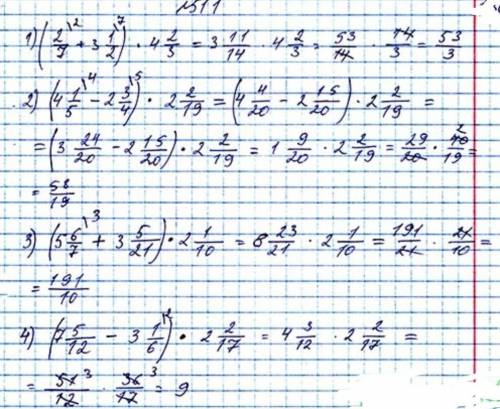 №511
1) (2/7\² + 3 1/2\⁷) · 4 2/3 = 3 11/14 · 4 2/3 = 53/14 · 14/3 = 53/3
2) (4 1/5\⁴ - 2 3/4\⁵) · 2 2/19 = (4 4/20 - 2 15/20) · 2 2/19 =
= (3 24/20 - 2 15/20) · 2 2/19 = 1 9/20 · 2 2/19 = 29/20 · 40 2/19 =
= 58/19
3) (5 6/7\³ + 3 5/21) · 2 1/10 = 8 23/21 · 2 1/10 = 191/21 · 21/10 =
= 191/10
4) (7 5/12 - 3 1/6\²) · 2 2/17 = 4 3/12 · 2 2/17 =
= 51 3/12 · 36 3/17 = 9